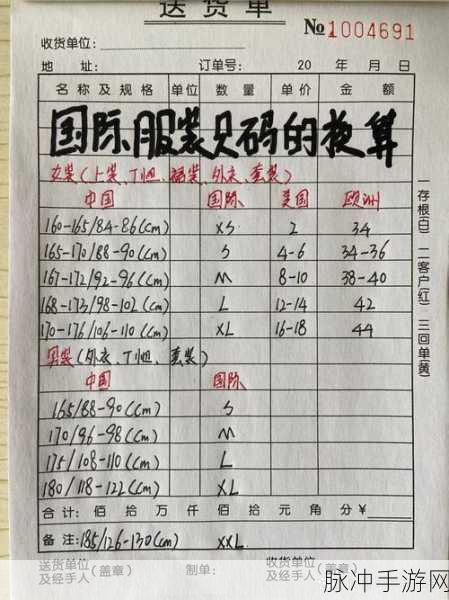 送货单
№1004691
收货单位:
地 址: 订单号: 20 年 月 日
名称及规格 单位 数量 单价 金额
国际服装尺码的换算
女装(上装、T恤、裙装、外衣、套装)
中国 国际 美国 欧洲
160-165/84-86(cm) XS 2 34
165-170/88-90(cm) S 4-6 34-36
167-172/92-96(cm) M 8-10 38-40
168-173/98-102(cm) L 12-14 42
170-176/106-110(cm) XL 16-18 44
男装(外衣、T恤、套装)
中国 国际
165/88-90(cm) S
170/96-98(cm) M
175/108-110(cm) L
180/118-122(cm) XL
合计: 佰 拾 万 仟 佰 拾 元 角 分¥
备注: 185/126-130(cm) XXL
送货单位及经手人(盖章) 制单: 收货单位及经手人(盖章)
一存根(白) 二客户(红) 三回单(黄)
脉冲手游网